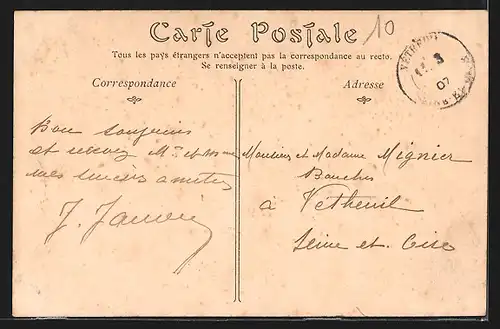 Carte Postale
10
Tous les pays étrangers n'acceptent pas la correspondance au recto.
Se renseigner à la poste.
Correspondance
Adresse
VÉTHEUIL
3
07
Bon souvenir
et recevez Mr et Mme
mes sincères amitiés
J. Janvier
Monsieur et Madame Mignier
Boucher
à Vetheuil
Seine et Oise